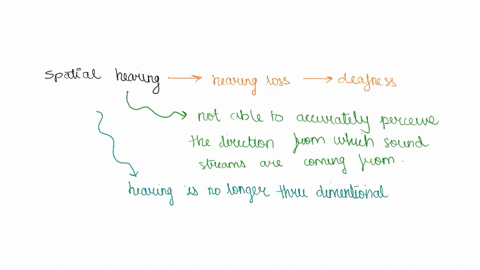 spatial hearing → hearing loss → deafness
not able to accurately perceive
the direction from which sound
streams are coming from.
hearing is no longer thru dimentional